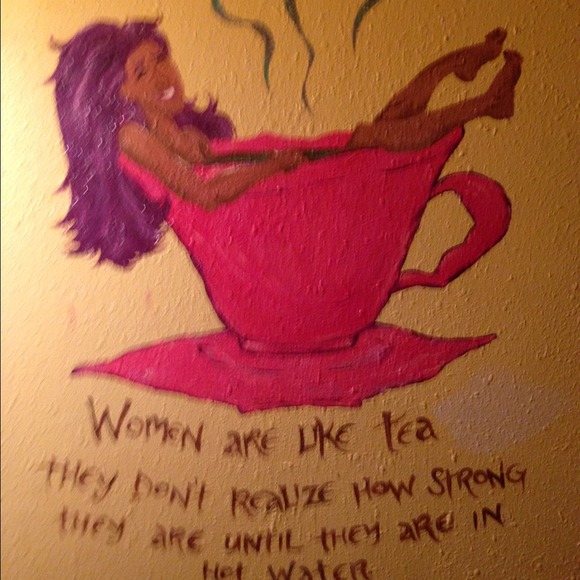 WOMEN ARE LIKE tea
tHEY DON'T REALIZE HOW STRONG
tHEY ARE UNTIL tHEY ARE IN
Hot WATER